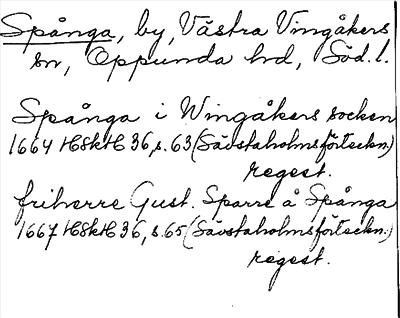 Spånga, by, Västra Vingåkers
sn, Oppunda hd, Söd. l.
Spånga i Wingåkers socken
1664 HSkH 36, s. 63 (Sävstaholmsförteckn.)
regest.
friherre Gust. Sparre å Spånga
1667 HSkH 36, s. 65 (Sävstaholmsförteckn.)
regest.